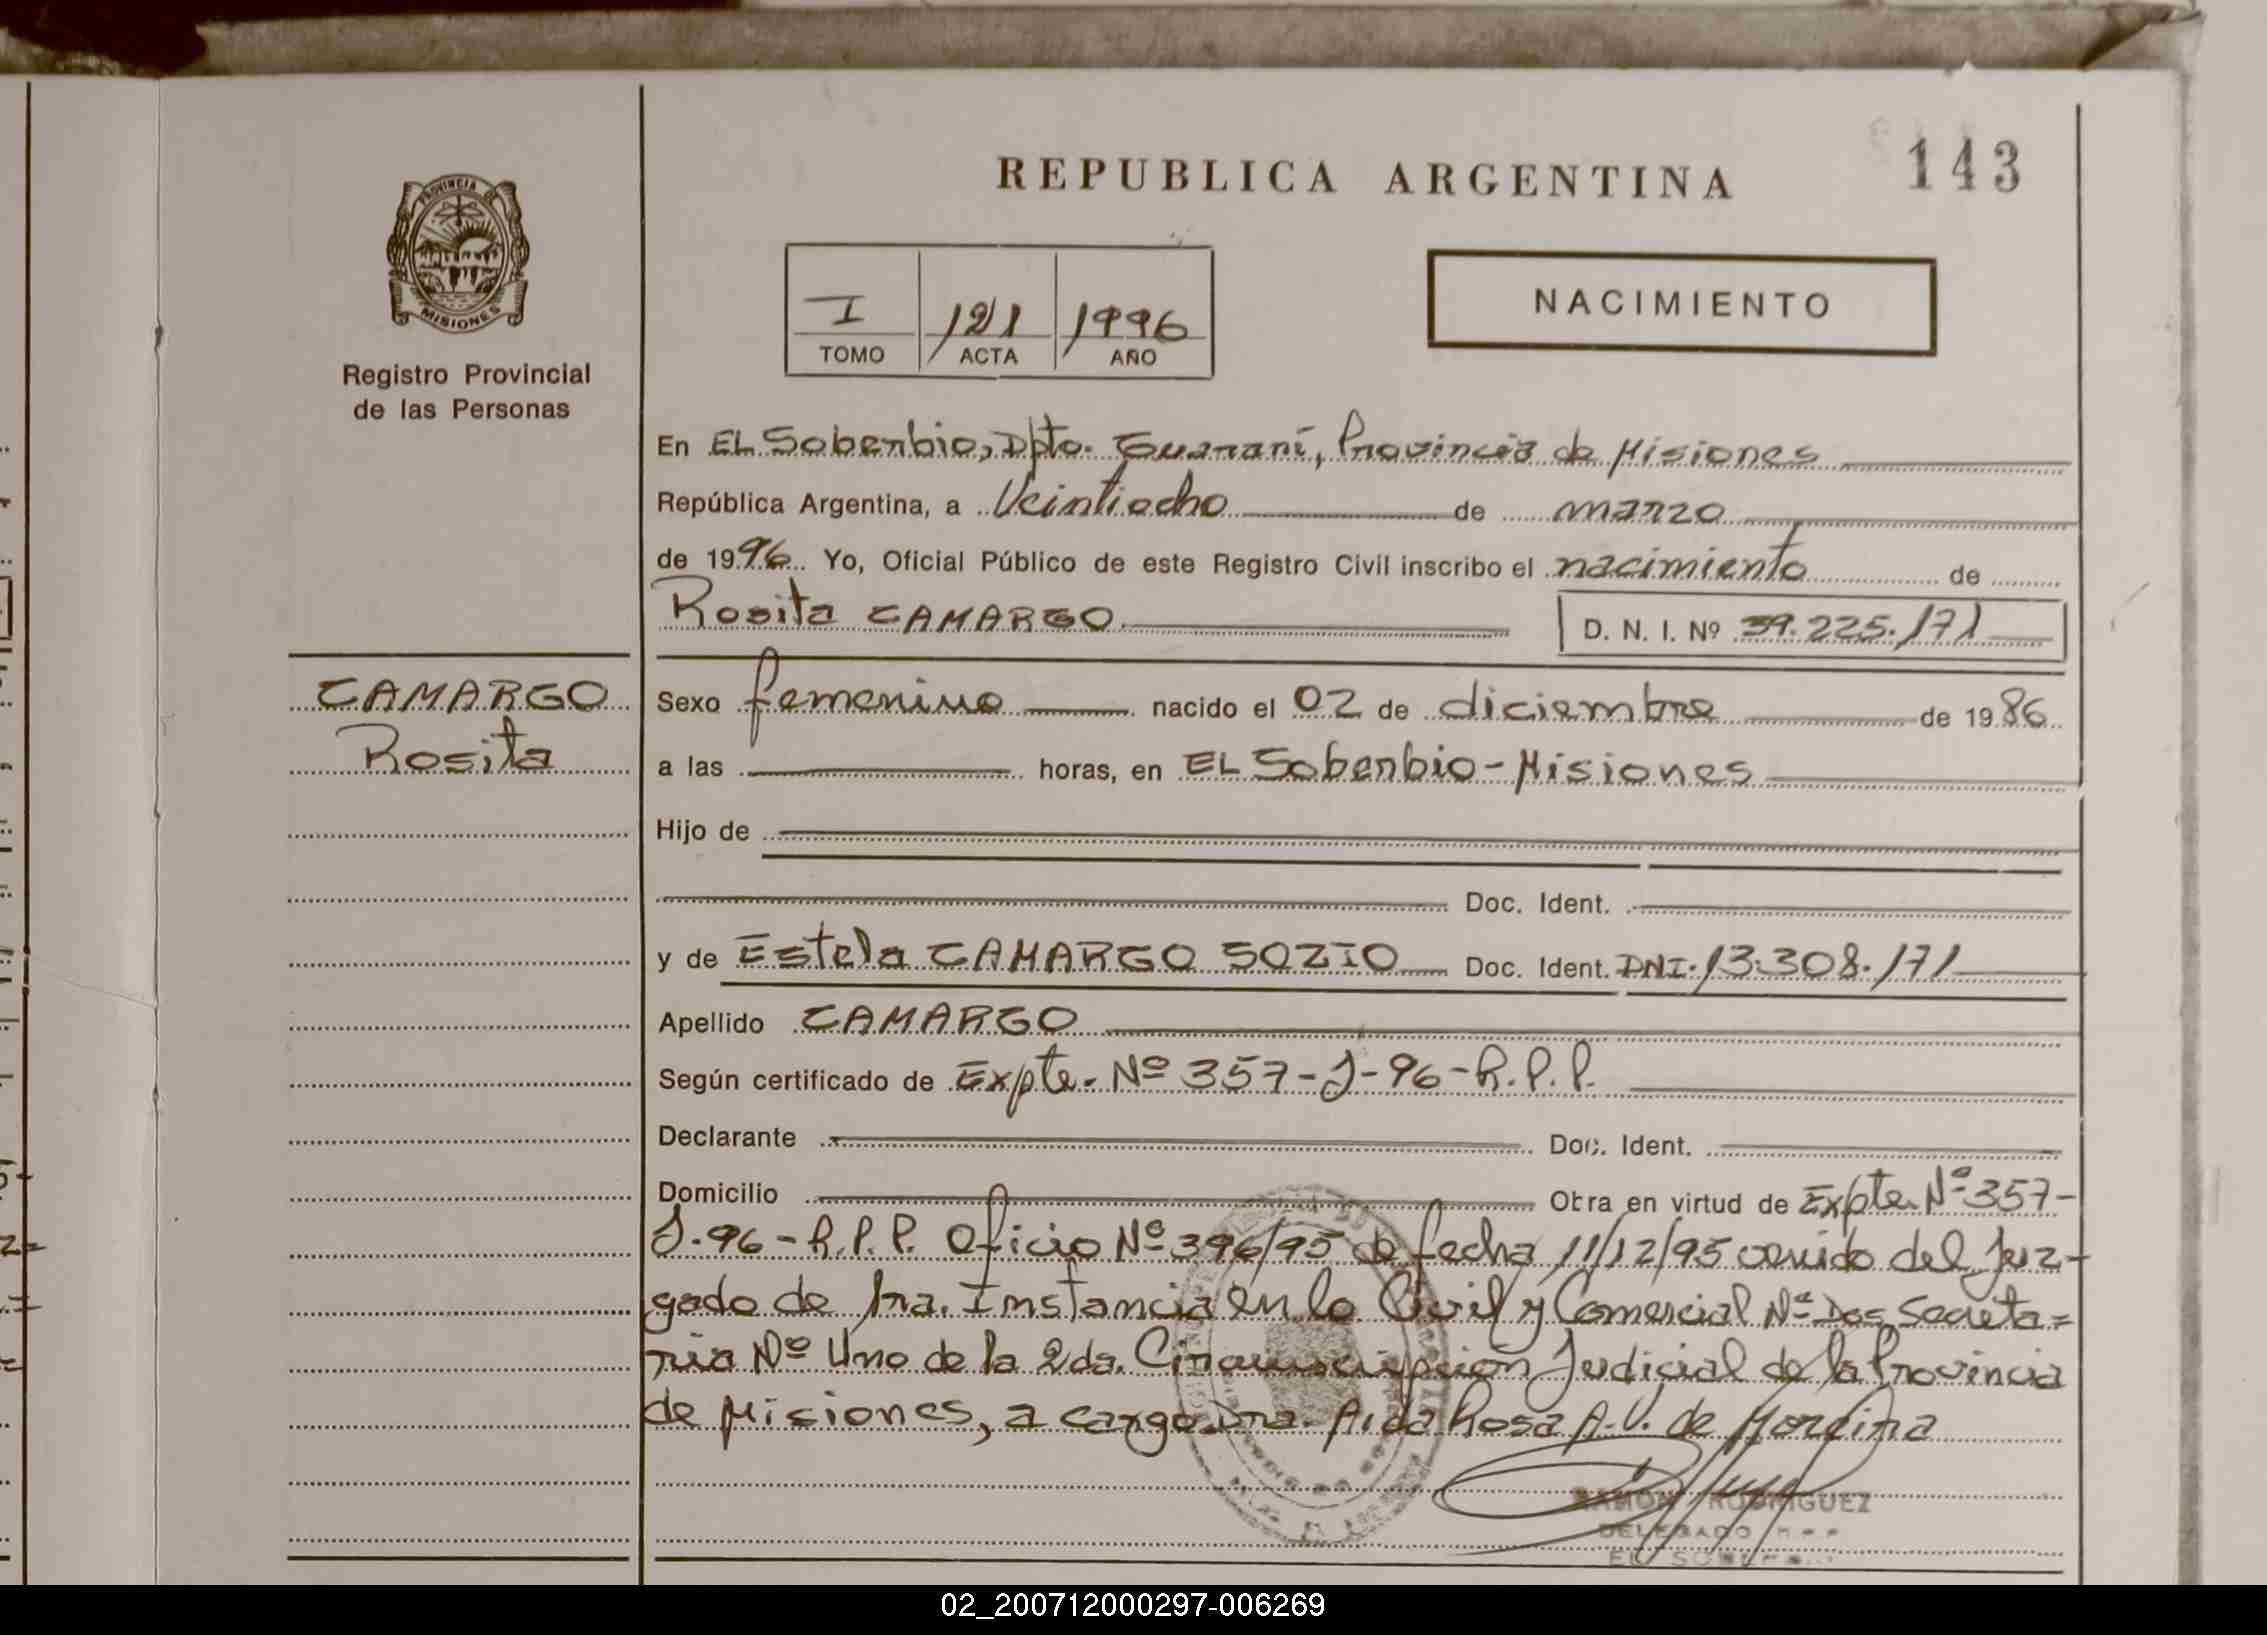 PROVINCIA DE
MISIONES
Registro Provincial
de las Personas
CAMARGO
Rosita
REPUBLICA ARGENTINA
143
I 121 1996
TOMO ACTA AÑO
NACIMIENTO
En EL Soberbio, Dpto. Guaraní, Provincia de Misiones
República Argentina, a Veintiocho de marzo
de 1996 Yo, Oficial Público de este Registro Civil inscribo el nacimiento de
Rosita CAMARGO D. N. I. Nº 39.225.171
Sexo femenino nacido el 02 de diciembre de 1986
a las horas, en EL Soberbio - Misiones
Hijo de
Doc. Ident.
y de Estela CAMARGO SOZIO Doc. Ident. DNI. 13.308.171
Apellido CAMARGO
Según certificado de Expte. Nº 357-J-96-R.P.P.
Declarante Doc. Ident.
Domicilio Otra en virtud de Expte. Nº 357-
J-96-R.P.P. Oficio Nº 396/95 de fecha 11/12/95 venido del Juz-
gado de 1ra. Instancia en lo Civil y Comercial Nº Dos, Secreta=
ria Nº Uno de la 2da. Circunscripcion Judicial de la Provincia
de Misiones, a cargo Dra. Aida Rosa A.V. de
RAMON RODRIGUEZ
DELEGADO
EL
02_200712000297-006269